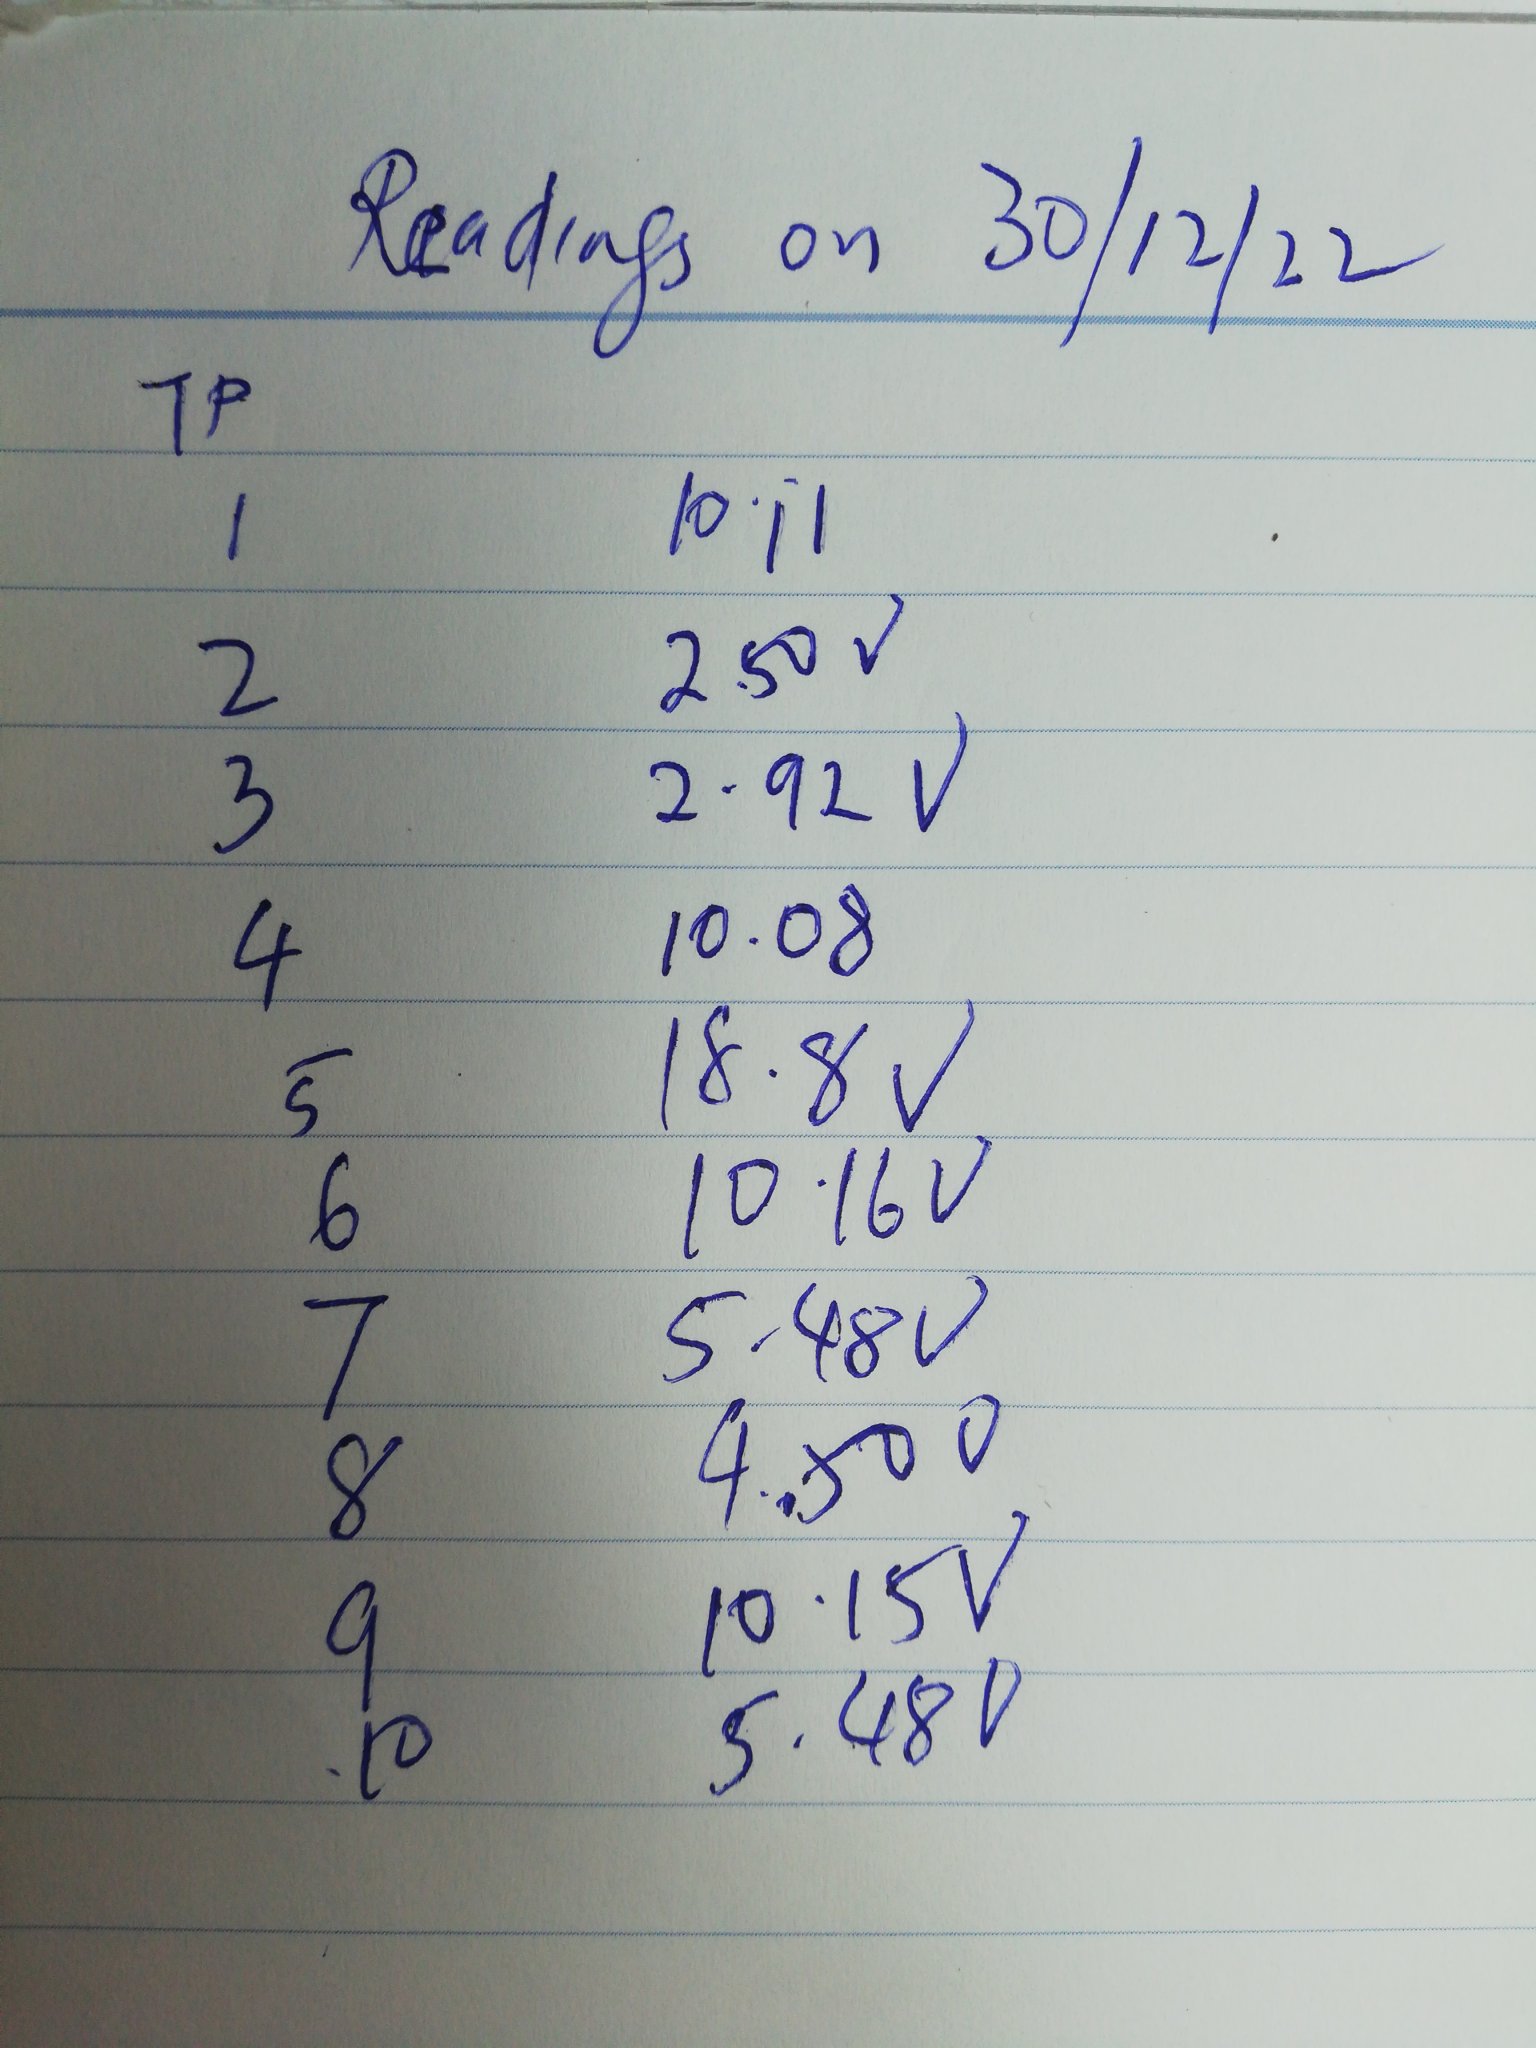 Readings on 30/12/22
TP
1 10.11
2 2.50V
3 2.92V
4 10.08
5 18.8V
6 10.16V
7 5.48V
8 4.50V
9 10.15V
10 5.48V